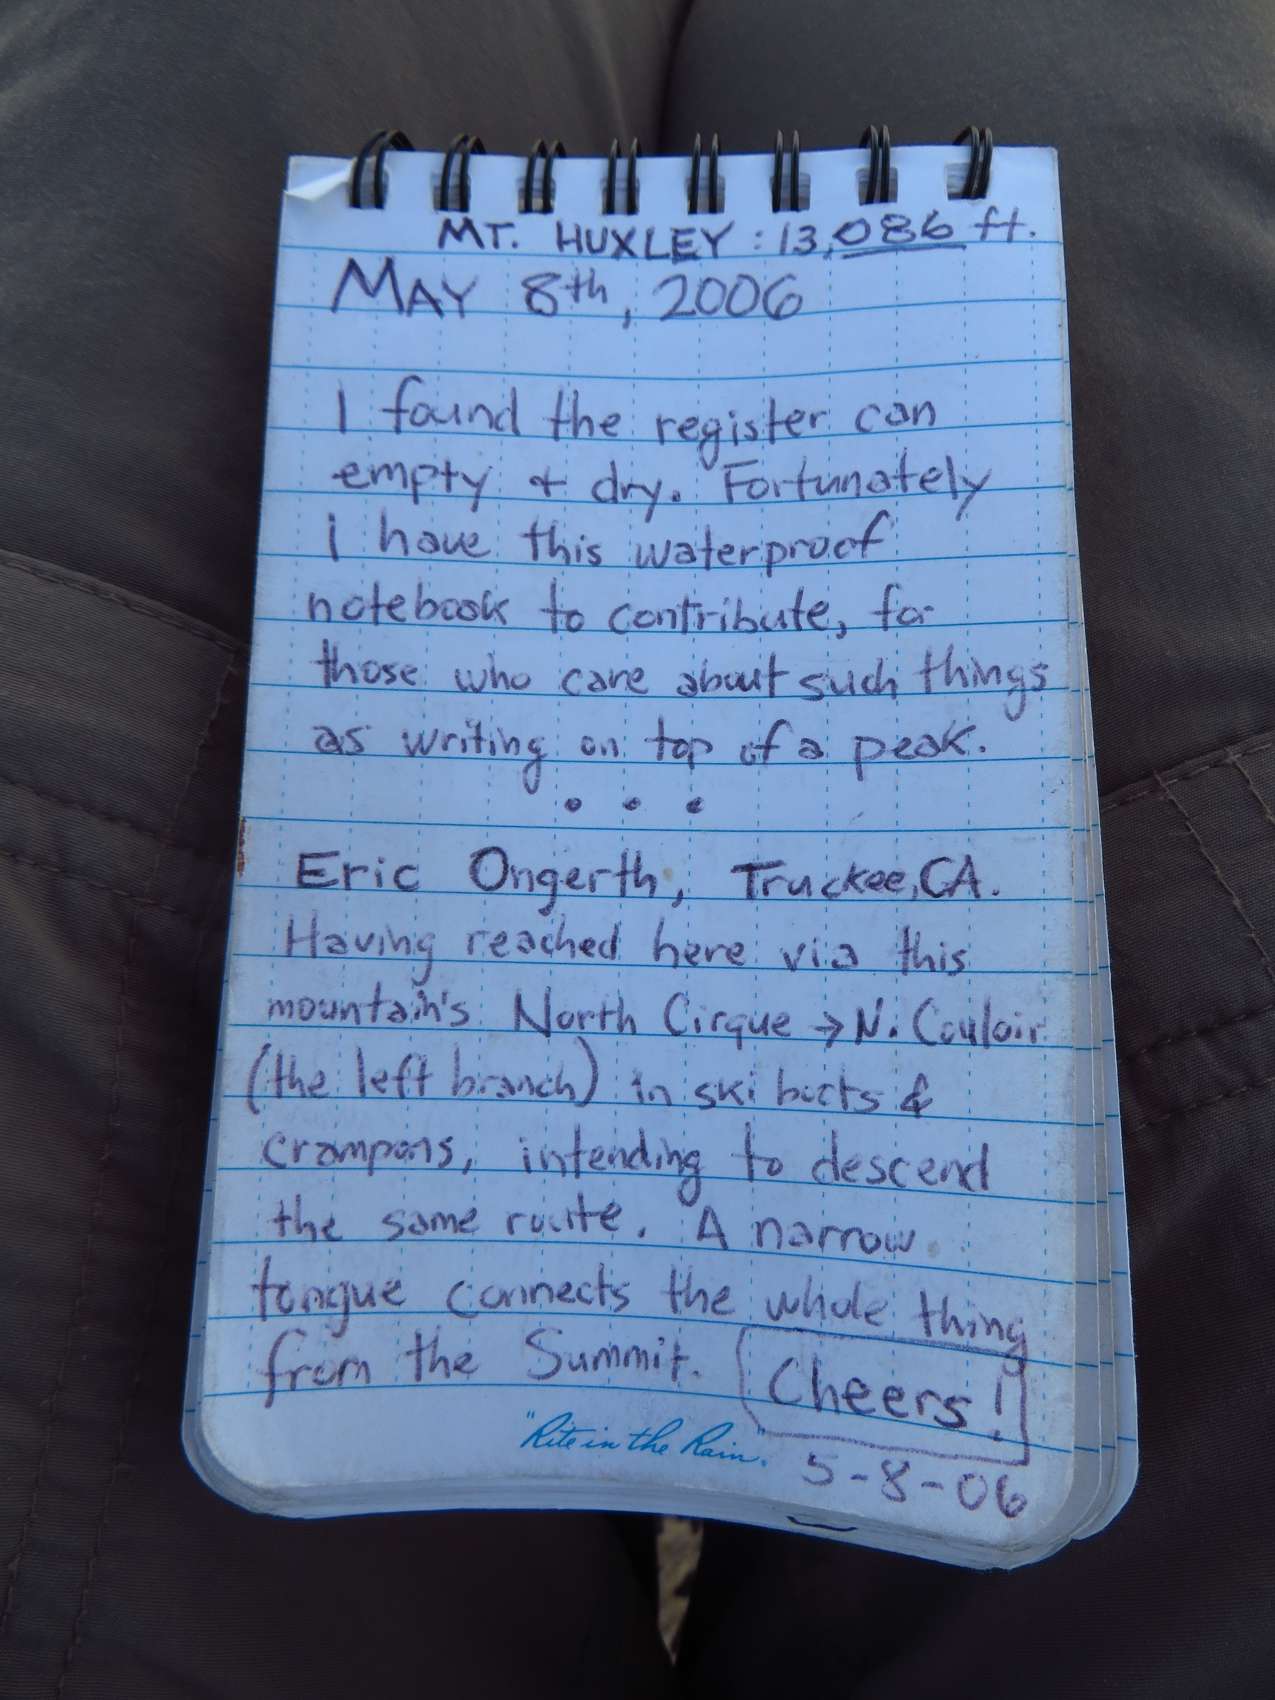 MT. HUXLEY : 13,086 ft.
MAY 8th, 2006
I found the register can
empty & dry. Fortunately
I have this waterproof
notebook to contribute, for
those who care about such things
as writing on top of a peak.
• • •
Eric Ongerth, Truckee, CA.
Having reached here via this
mountain's North Cirque → N. Couloir
(the left branch) in ski boots &
crampons, intending to descend
the same route. A narrow
tongue connects the whole thing
from the Summit. Cheers!
"Rite in the Rain".
5-8-06